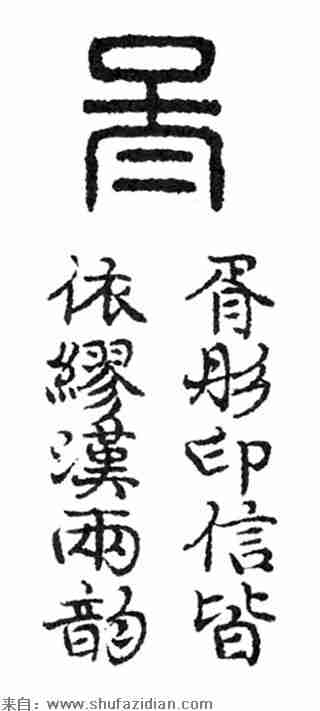 胥
胥彤印信皆
依繆漢兩韵
来自：www.shufazidian.com